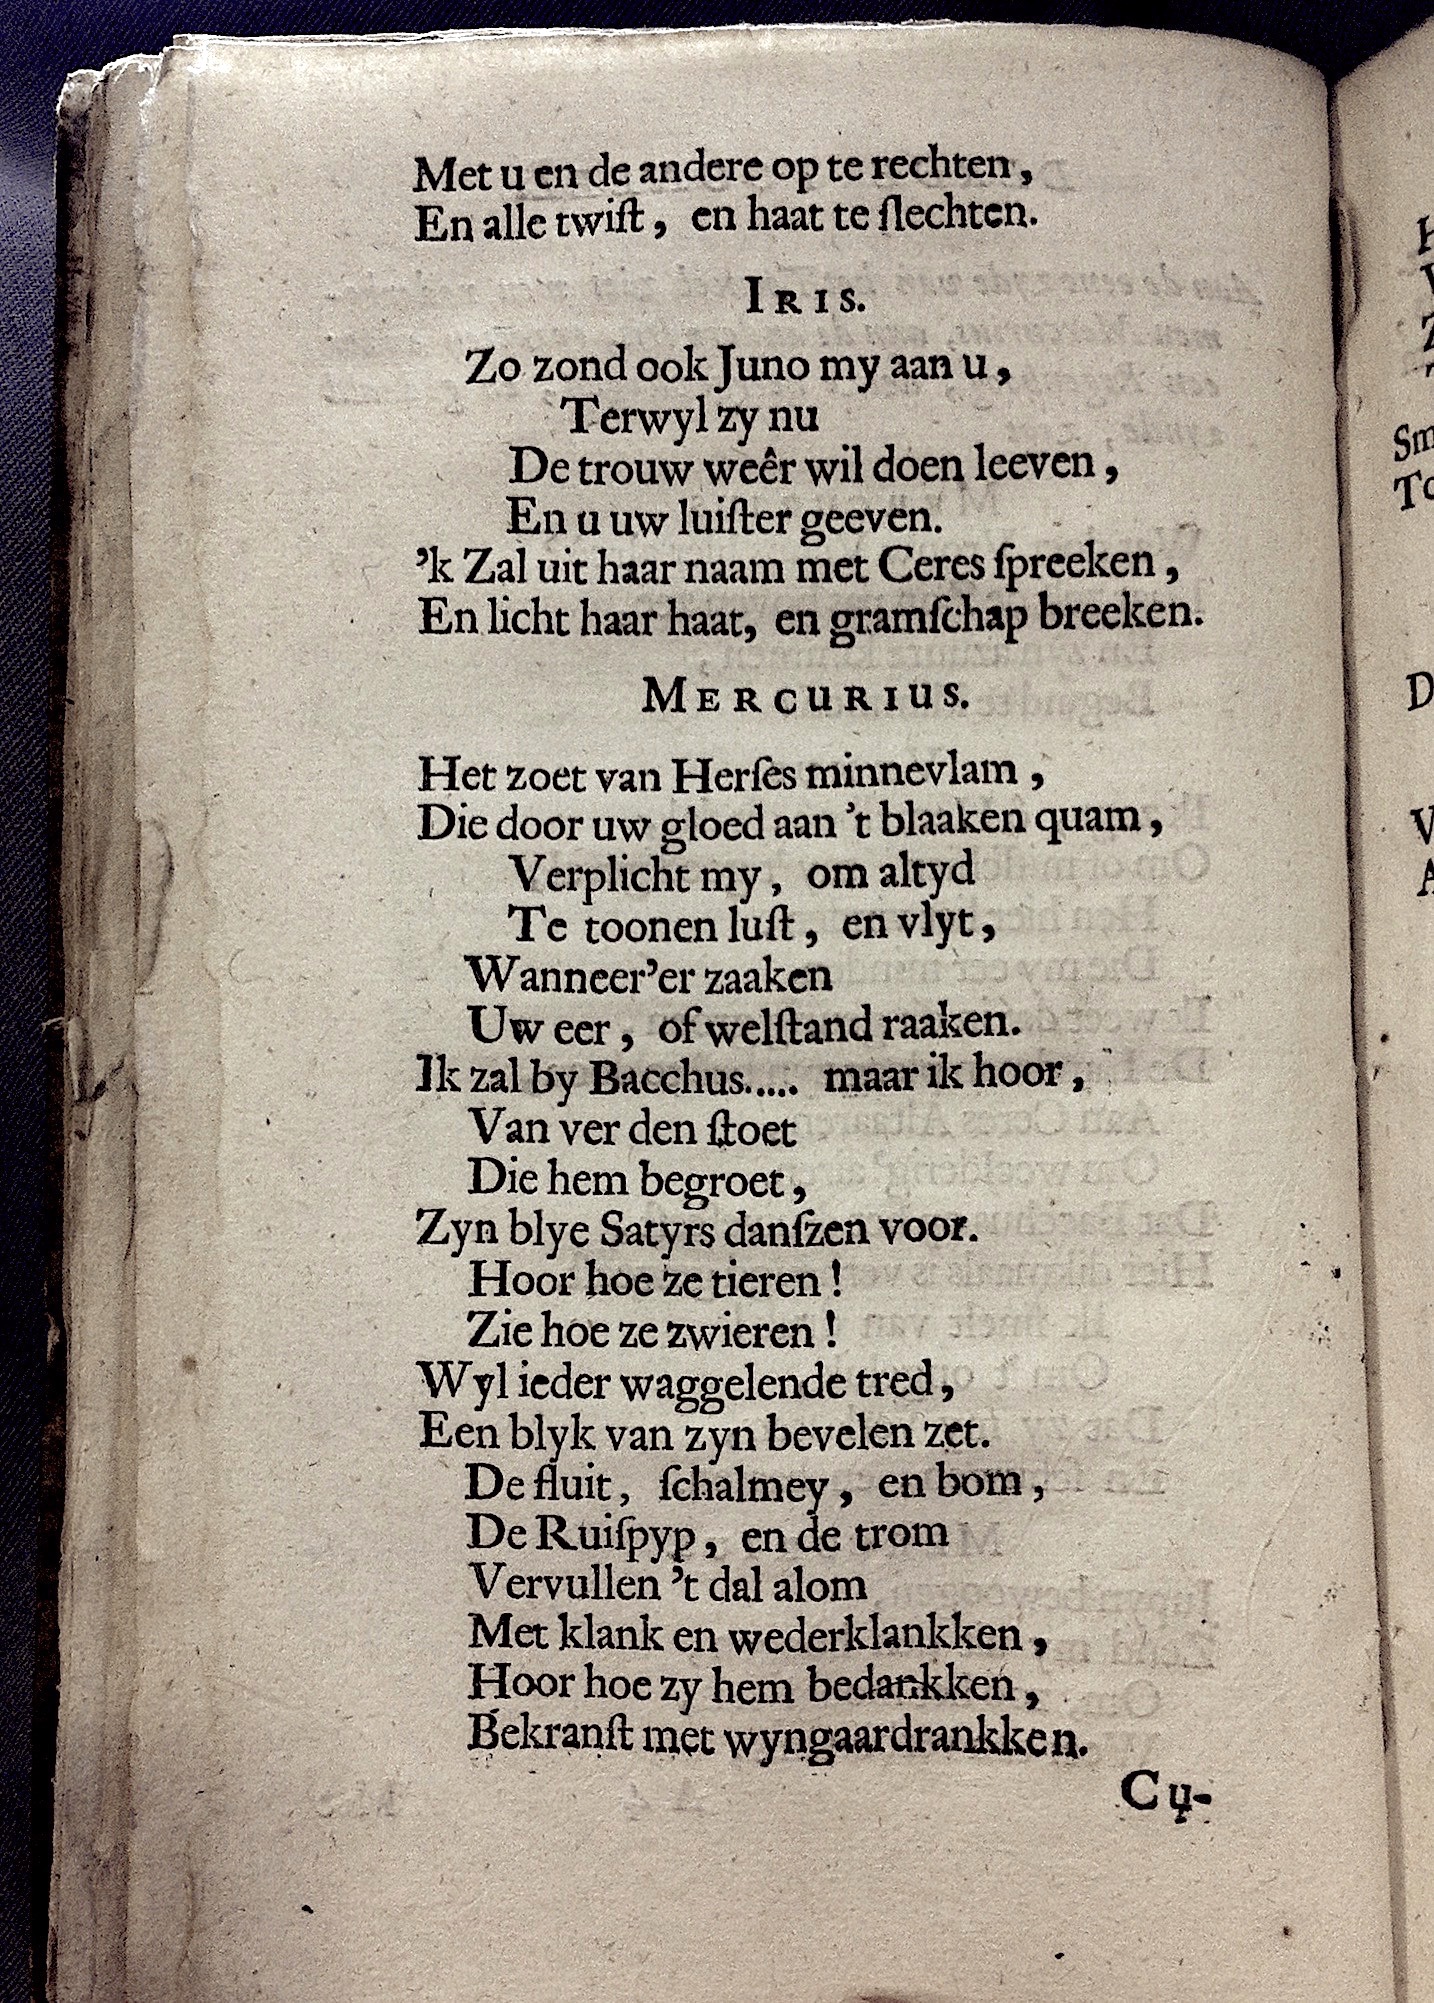 Met u en de andere op te rechten,
En alle twiſt, en haat te ſlechten.
IRIS.
Zo zond ook Juno my aan u,
Terwyl zy nu
De trouw weêr wil doen leeven,
En u uw luiſter geeven.
’k Zal uit haar naam met Ceres ſpreeken,
En licht haar haat, en gramſchap breeken.
MERCURIUS.
Het zoet van Herſes minnevlam,
Die door uw gloed aan ’t blaaken quam,
Verplicht my, om altyd
Te toonen luſt, en vlyt,
Wanneer’er zaaken
Uw eer, of welſtand raaken.
Ik zal by Bacchus..... maar ik hoor,
Van ver den ſtoet
Die hem begroet,
Zyn blye Satyrs danſzen voor.
Hoor hoe ze tieren!
Zie hoe ze zwieren!
Wyl ieder waggelende tred,
Een blyk van zyn bevelen zet.
De fluit, ſchalmey, en bom,
De Ruiſpyp, en de trom
Vervullen ’t dal alom
Met klank en wederklankken,
Hoor hoe zy hem bedankken,
Bekranſt met wyngaardrankken.
Cy-